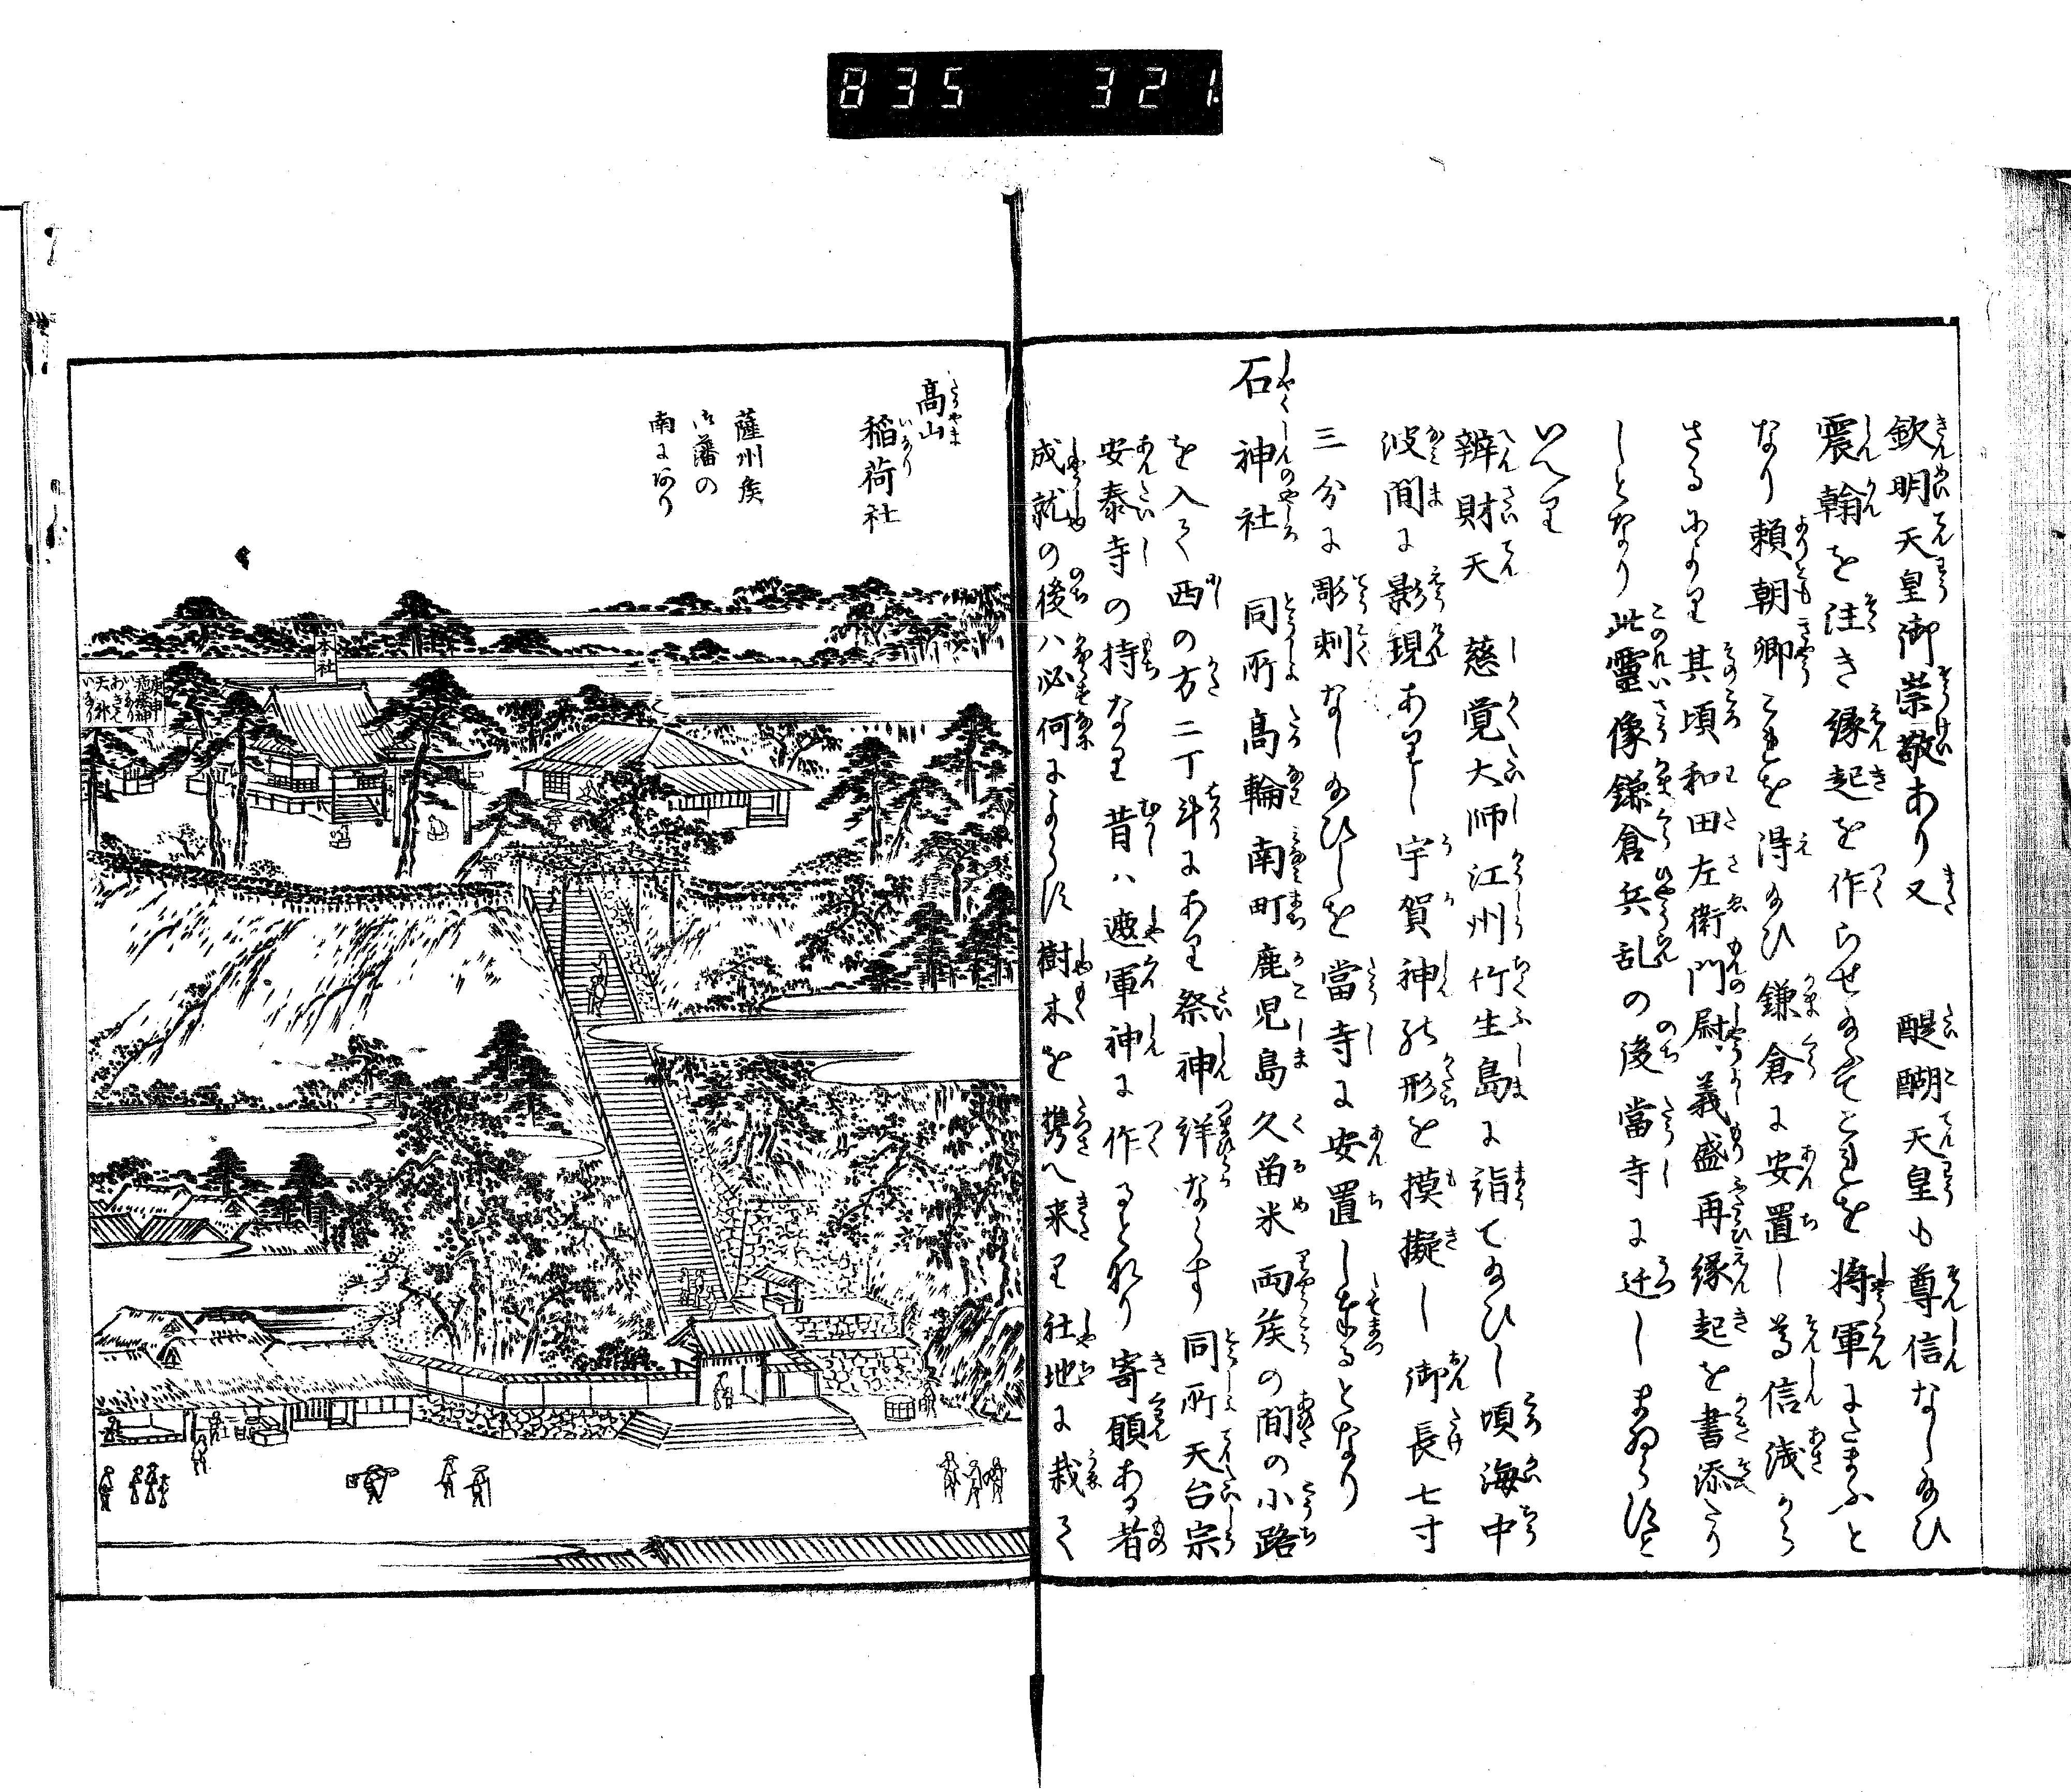 835 321
欽明天皇御崇敬あり又 醍醐天皇も尊信なし給ひ
震翰を注き縁起を作らせ給ふてこれを将軍にたまふと
なり頼朝卿これを得給ひ鎌倉に安置し尊信浅から
さるによれり其頃和田左衛門尉義盛再縁起を書添たり
しとなり此霊像鎌倉兵乱の後當寺に迁しまゐらすと
いへり
辨財天 慈覚大師江州竹生島に詣てたまひし頃海中
波間に影現ありし宇賀神の形を摸擬し御長七寸
三分に彫刻なし給ひしを當寺に安置し奉るとなり
石神社 同所高輪南町鹿児島久留米両侯の間の小路
を入て西の方二丁斗にあり祭神詳ならす同所天台宗
安泰寺の持なり昔ハ遮軍神に作ると云り寄願ある者
成就の後ハ必何によらす樹木を携へ来り社地に栽て
高山
稲荷社
薩州侯
御藩の
南にあり
本社
庚申
疱瘡神
いなり
天神